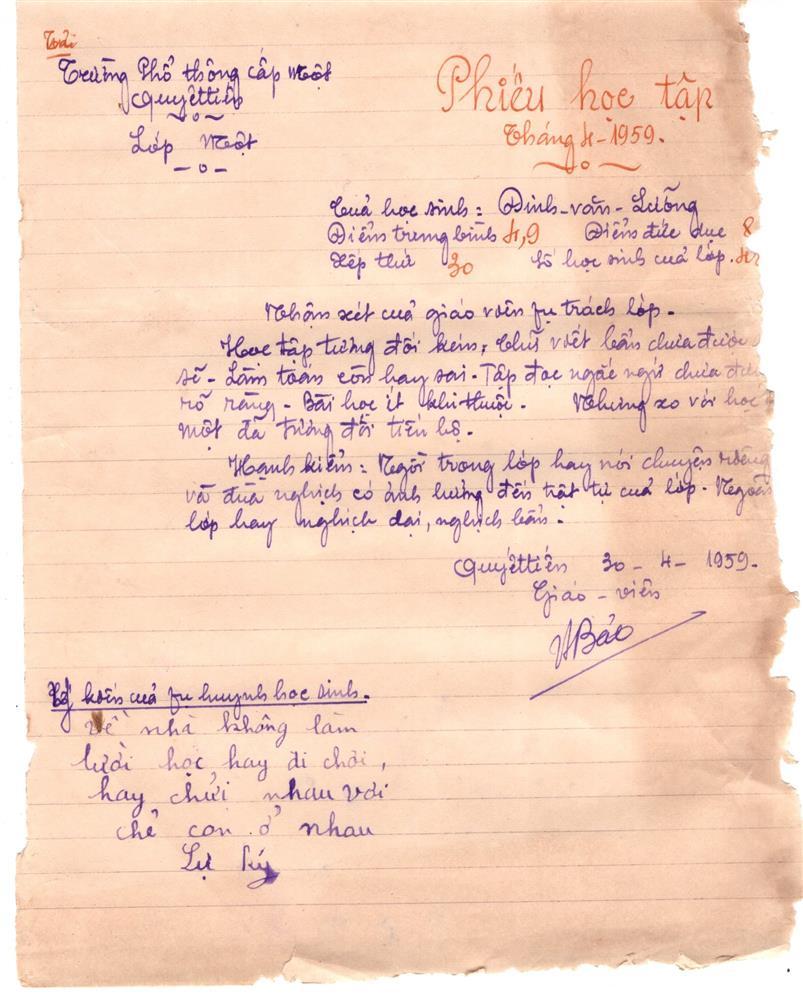 Trường Phổ thông cấp Một
Quyếttiến
Lớp Một
Phiếu học tập
Tháng 4-1959.
Của học sinh: Đinh-văn-Lưỡng
Điểm trung bình 4,9 Điểm đức dục 8
Xếp thứ 30 Số học sinh của lớp.
Nhận xét của giáo viên fụ trách lớp.
Học tập tương đối kém, Chữ viết bẩn chưa được
sẽ - Làm toán còn hay sai - Tập đọc ngắc ngứ chưa
rõ ràng - Bài học ít khi thuộc. Nhưng so với học
một đã tương đối tiến bộ.
Hạnh kiểm: Ngồi trong lớp hay nói chuyện riêng
và đùa nghịch có ảnh hưởng đến trật tự của lớp - Ngoài
lớp hay nghịch dại, nghịch bẩn.
Quyếttiến 30-4-1959.
Giáo-viên
VBảo
Ý kiến của fụ huynh học sinh.
về nhà không làm
lười học hay đi chơi,
hay chửi nhau với
con ở nhau
ký